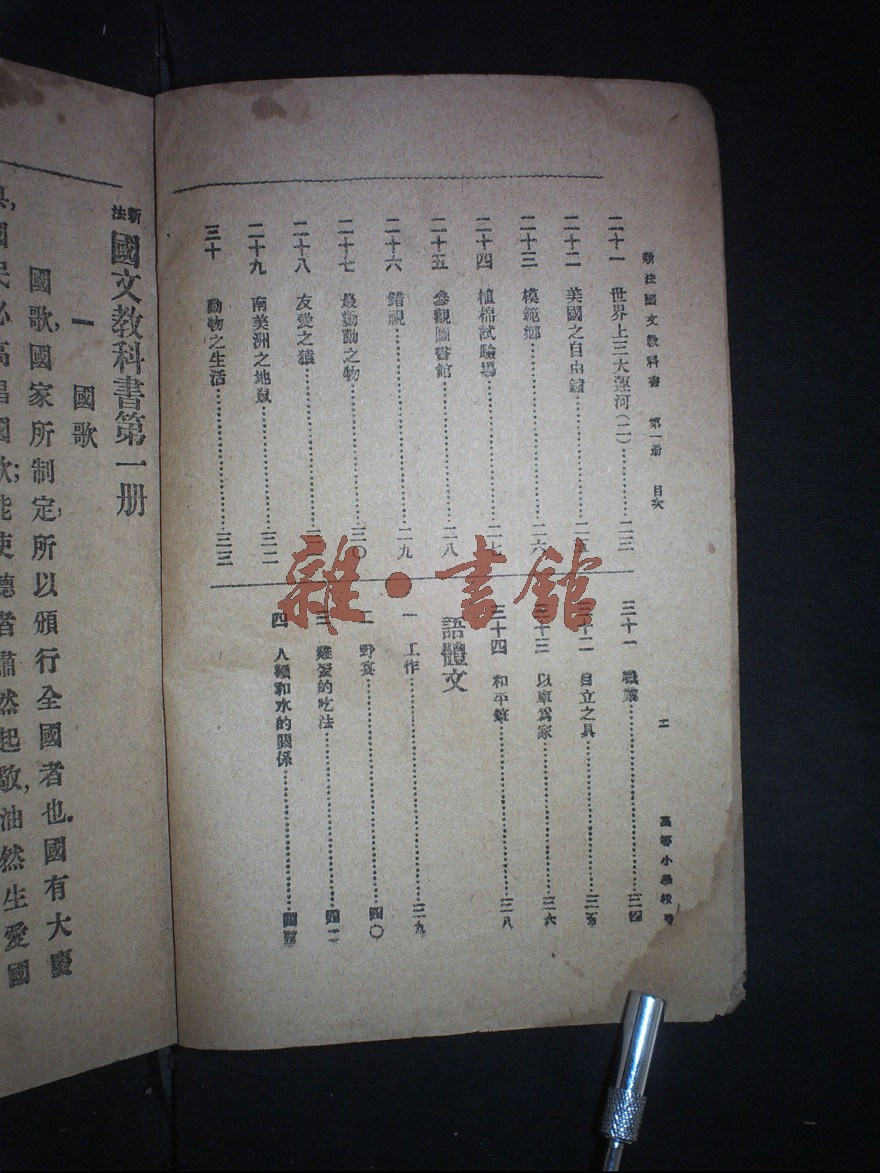 新法國文教科書 第一册 目次
二十一 世界上三大運河(二)……二三
二十二 美國之自由鐘……二五
二十三 模範鄉……二六
二十四 植棉試驗場……二七
二十五 參觀圖書館……二八
二十六 錯視……二九
二十七 最勤動之物……三〇
二十八 友愛之猿
二十九 南美洲之地鼠……三二
三十 動物之生活……三三
三十一 職業……三四
三十二 自立之具……三五
三十三 以車爲家……三六
三十四 和平鐘……三八
語體文
一 工作……三九
二 野宴……四〇
三 雞蛋的吃法……四二
四 人類和水的關係
二
高等小學校
雜·書館
新法國文教科書第一册
一 國歌
國歌,國家所制定,所以頒行全國者也.國有大慶
國民必高唱國歌;能使聽者肅然起敬,油然生愛國